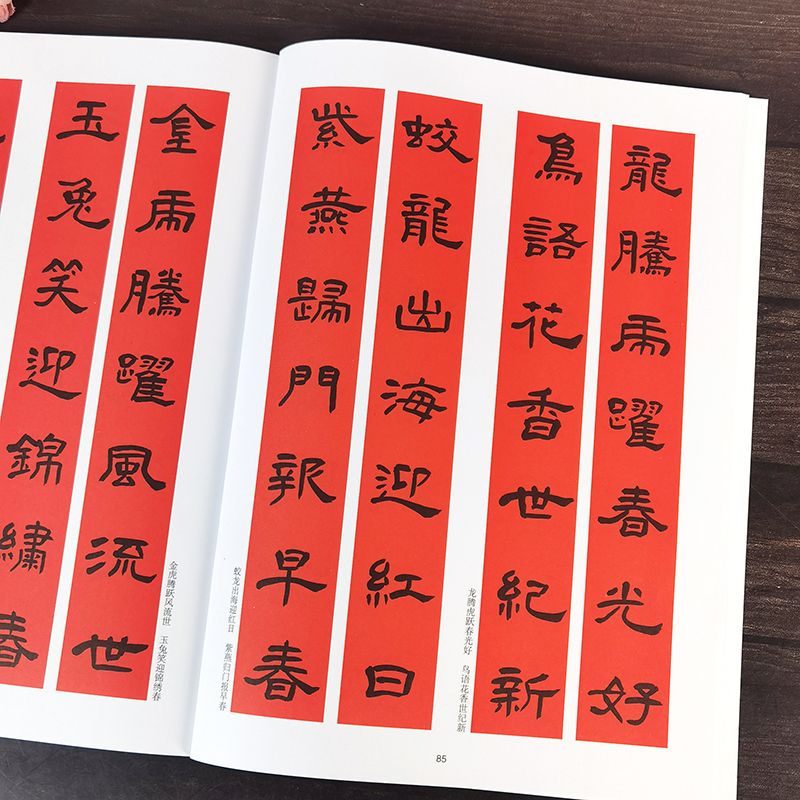 龍騰虎躍春光好
鳥語花香世紀新
龙腾虎跃春光好 鸟语花香世纪新
蛟龍出海迎紅日
紫燕歸門報早春
蛟龙出海迎红日 紫燕归门报早春
85
金虎騰躍風流世
玉兔笑迎錦繡春
金虎腾跃风流世 玉兔笑迎锦绣春